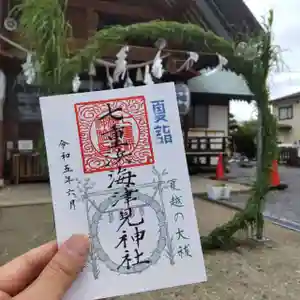 夏詣
七重浜海津見神社
夏越の大祓
令和五年六月